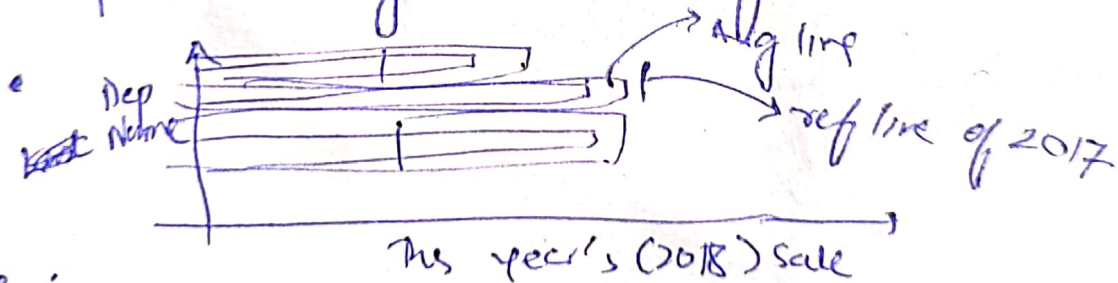 Avg line
Dep
Name
ref line of 2017
This year's (2018) Sale